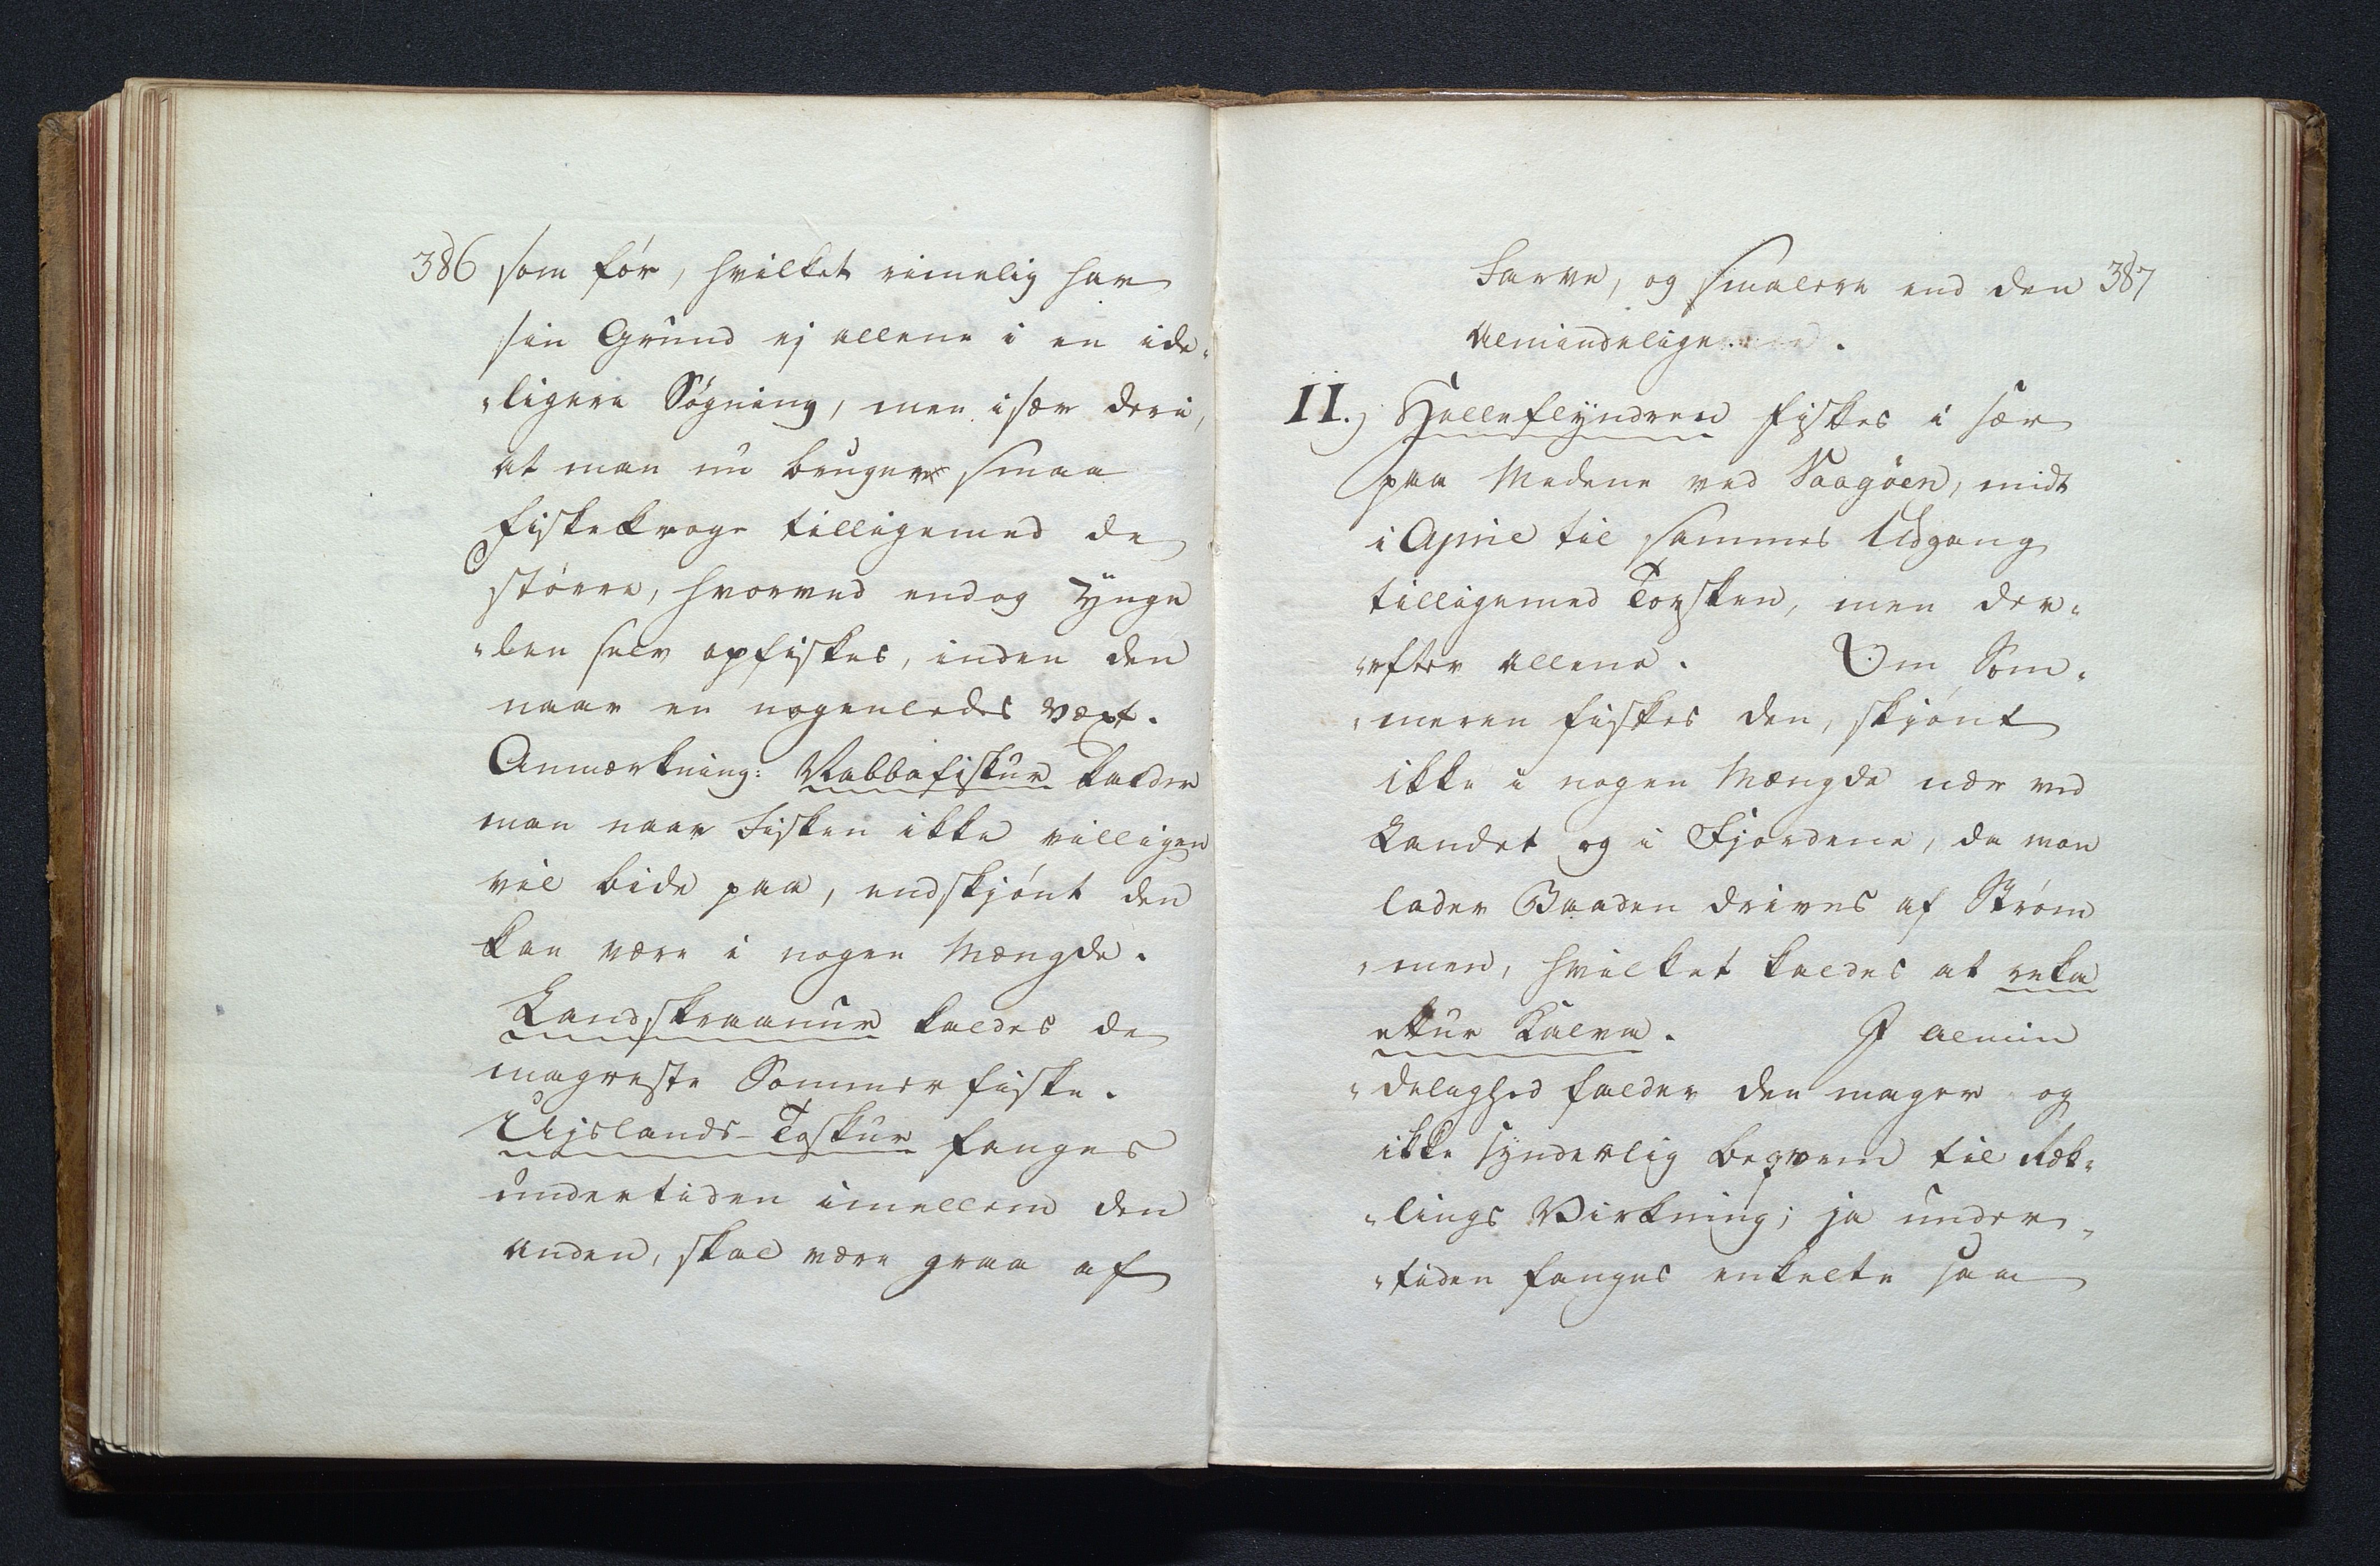 386 som før, hvilket rimelig har
sin Grund ej allene i en ide„
„ligere Søgning, men især deri,
at man nu bruger smaa
Fiskekroge tilligemed de
større, hvorved endog Ynge
„len selv opfiskes, inden den
naar en nogenledes Væxt.
Anmærkning: Rabbafiskur kalder
man naar Fisken ikke villigen
vil bide paa, endskjønt den
kan være i nogen Mængde.
Landskraanur kaldes de
magreste Sommer fiske.
Ujslands-Toskur fanges
undertiden imellem den
anden, skal være graa af
Farve, og smalere end den 387
almindelige.
II.) Helleflyndren fiskes i sær
paa Medene ved Vaagöen, midt
i April til sammes Udgang
tilligemed Torsken, men der„
„efter allene. Om Som„
„meren fiskes den, skjønt
ikke i nogen Mængde nær ved
Landet og i Fjordene, da man
lader Baaden drives af Strøm
„men, hvilket kaldes at reka
ettur Kalva. I almin
„delighed falder den mager og
ikke synderlig beqvem til Ræk„
„lings Virkning; ja under„
„tiden fanges enkelte saa